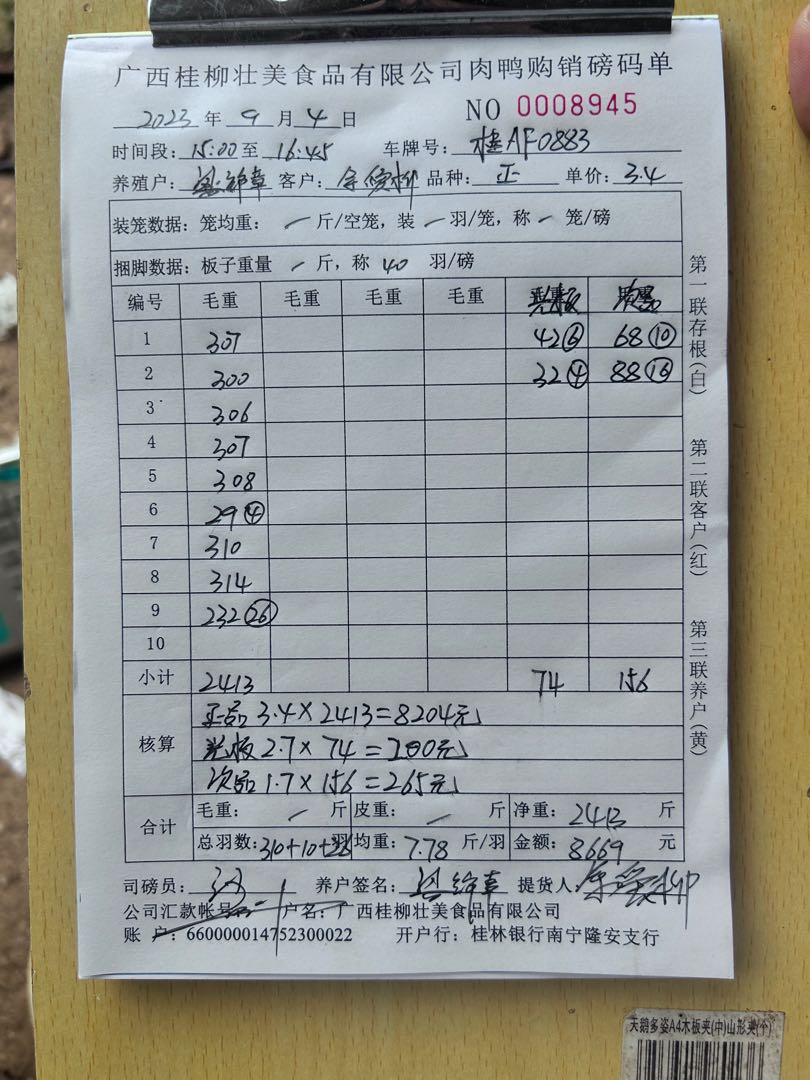 广西桂柳壮美食品有限公司肉鸭购销磅码单
2023 年 9 月 4 日 NO 0008945
时间段: 15:00 至 16:45 车牌号: 桂AF0883
养殖户: 客户: 品种: 正 单价: 3.4
装笼数据: 笼均重: 一 斤/空笼, 装 一 羽/笼, 称 一 笼/磅
捆脚数据: 板子重量 一 斤, 称 40 羽/磅
编号 毛重 毛重 毛重 毛重
1 307 42⑥ 68⑩
2 300 32④ 88⑯
3 306
4 307
5 308
6 29④
7 310
8 314
9 232㉖
10
小计 2413 74 156
核算
正品 3.4×2413=8204元
光板 2.7×74=200元
次品 1.7×156=265元
合计
毛重: 一 斤 皮重: 一 斤 净重: 2413 斤
总羽数: 310+10+26 羽 均重: 7.78 斤/羽 金额: 8669 元
司磅员: 养户签名: 提货人:
公司汇款帐号 户名: 广西桂柳壮美食品有限公司
账 户: 660000014752300022 开户行: 桂林银行南宁隆安支行
第一联存根(白)
第二联客户(红)
第三联养户(黄)
天鹅多姿A4木板夹(中)山形夹(个)